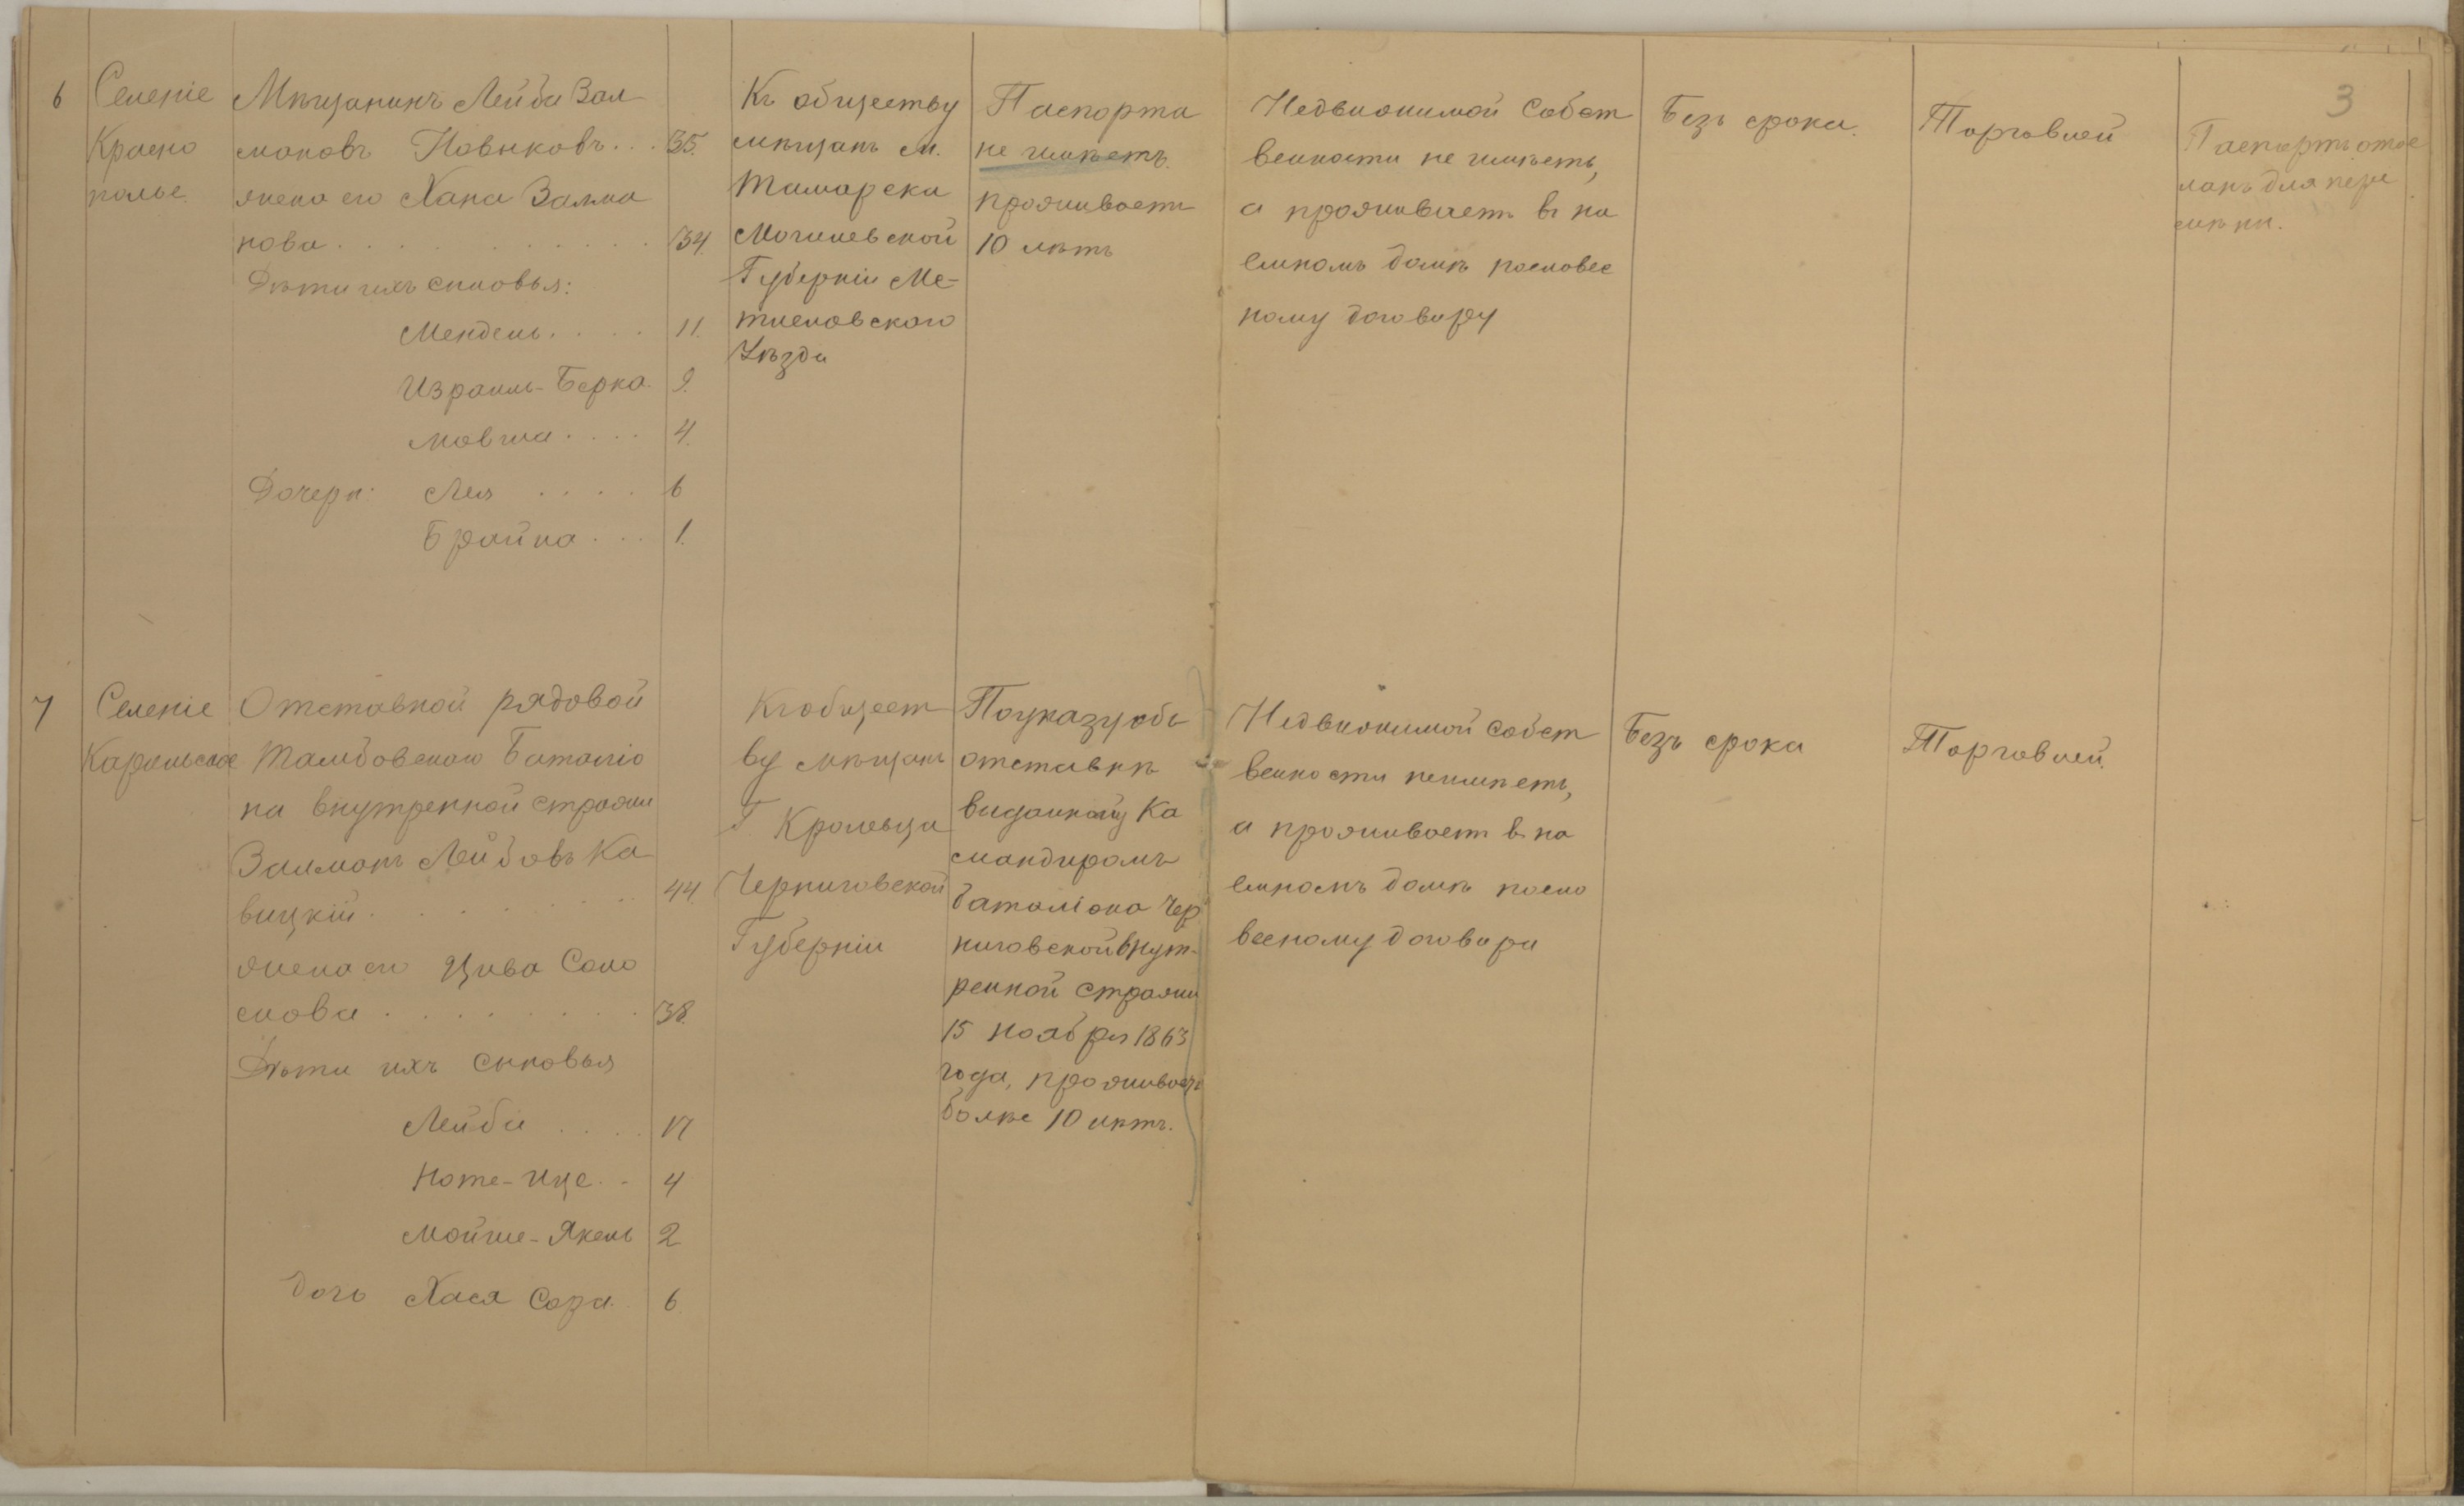 3
6
Селеніе
Красно
полье.
Мѣщанинъ Лейба Зал
мановъ Новиковъ... 35.
жена его Хана Залма
нова............ 34.
Дѣти ихъ сыновья:
Мендель..... 11.
Израиль-Берка. 9.
Мовша.... 4.
Дочери: Лея .... 6
Брайна... 1.
Къ обществу
мѣщанъ м.
Могилевской
Губерніи
Уѣзда
Паспорта
не имѣетъ.
проживаетъ
10 лѣтъ
Недвижимой Собст
венности не имѣетъ,
а проживаетъ въ на
емномъ домѣ пословес
ному договору
Безъ срока.
Торговлей
Паспортъ отос
ланъ для пере
мѣны.
7
Селеніе
Отставной рядовой
Тамбовскаго Баталіо
на внутренной стражи
Залманъ Лейбовъ Ка
вицкій......... 44
жена его Цива Соло
мова......... 38.
Дѣти ихъ сыновья
Лейба .... 17
Ноте-Ице.. 4
Мойше-Янкель 2
дочь Хася Сора. 6
Къ общест
ву мѣщанъ
Г. Кролевца
Черниговской
Губерніи
По указу объ
отставкѣ
выданному Ка
мандиромъ
баталіона Чер
ниговской внут-
ренной стражи
15 ноября 1863
года, проживаетъ
болѣе 10 лѣтъ.
Недвижимой собст
венности неимѣетъ,
а проживаетъ въ на
емномъ домѣ посло
весному договора
Безъ срока
Торговлей.